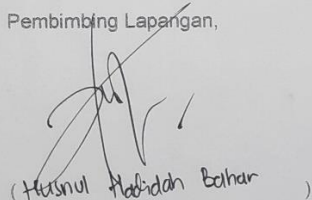 Pembimbing Lapangan,
(Husnul Hadidah Bahar)